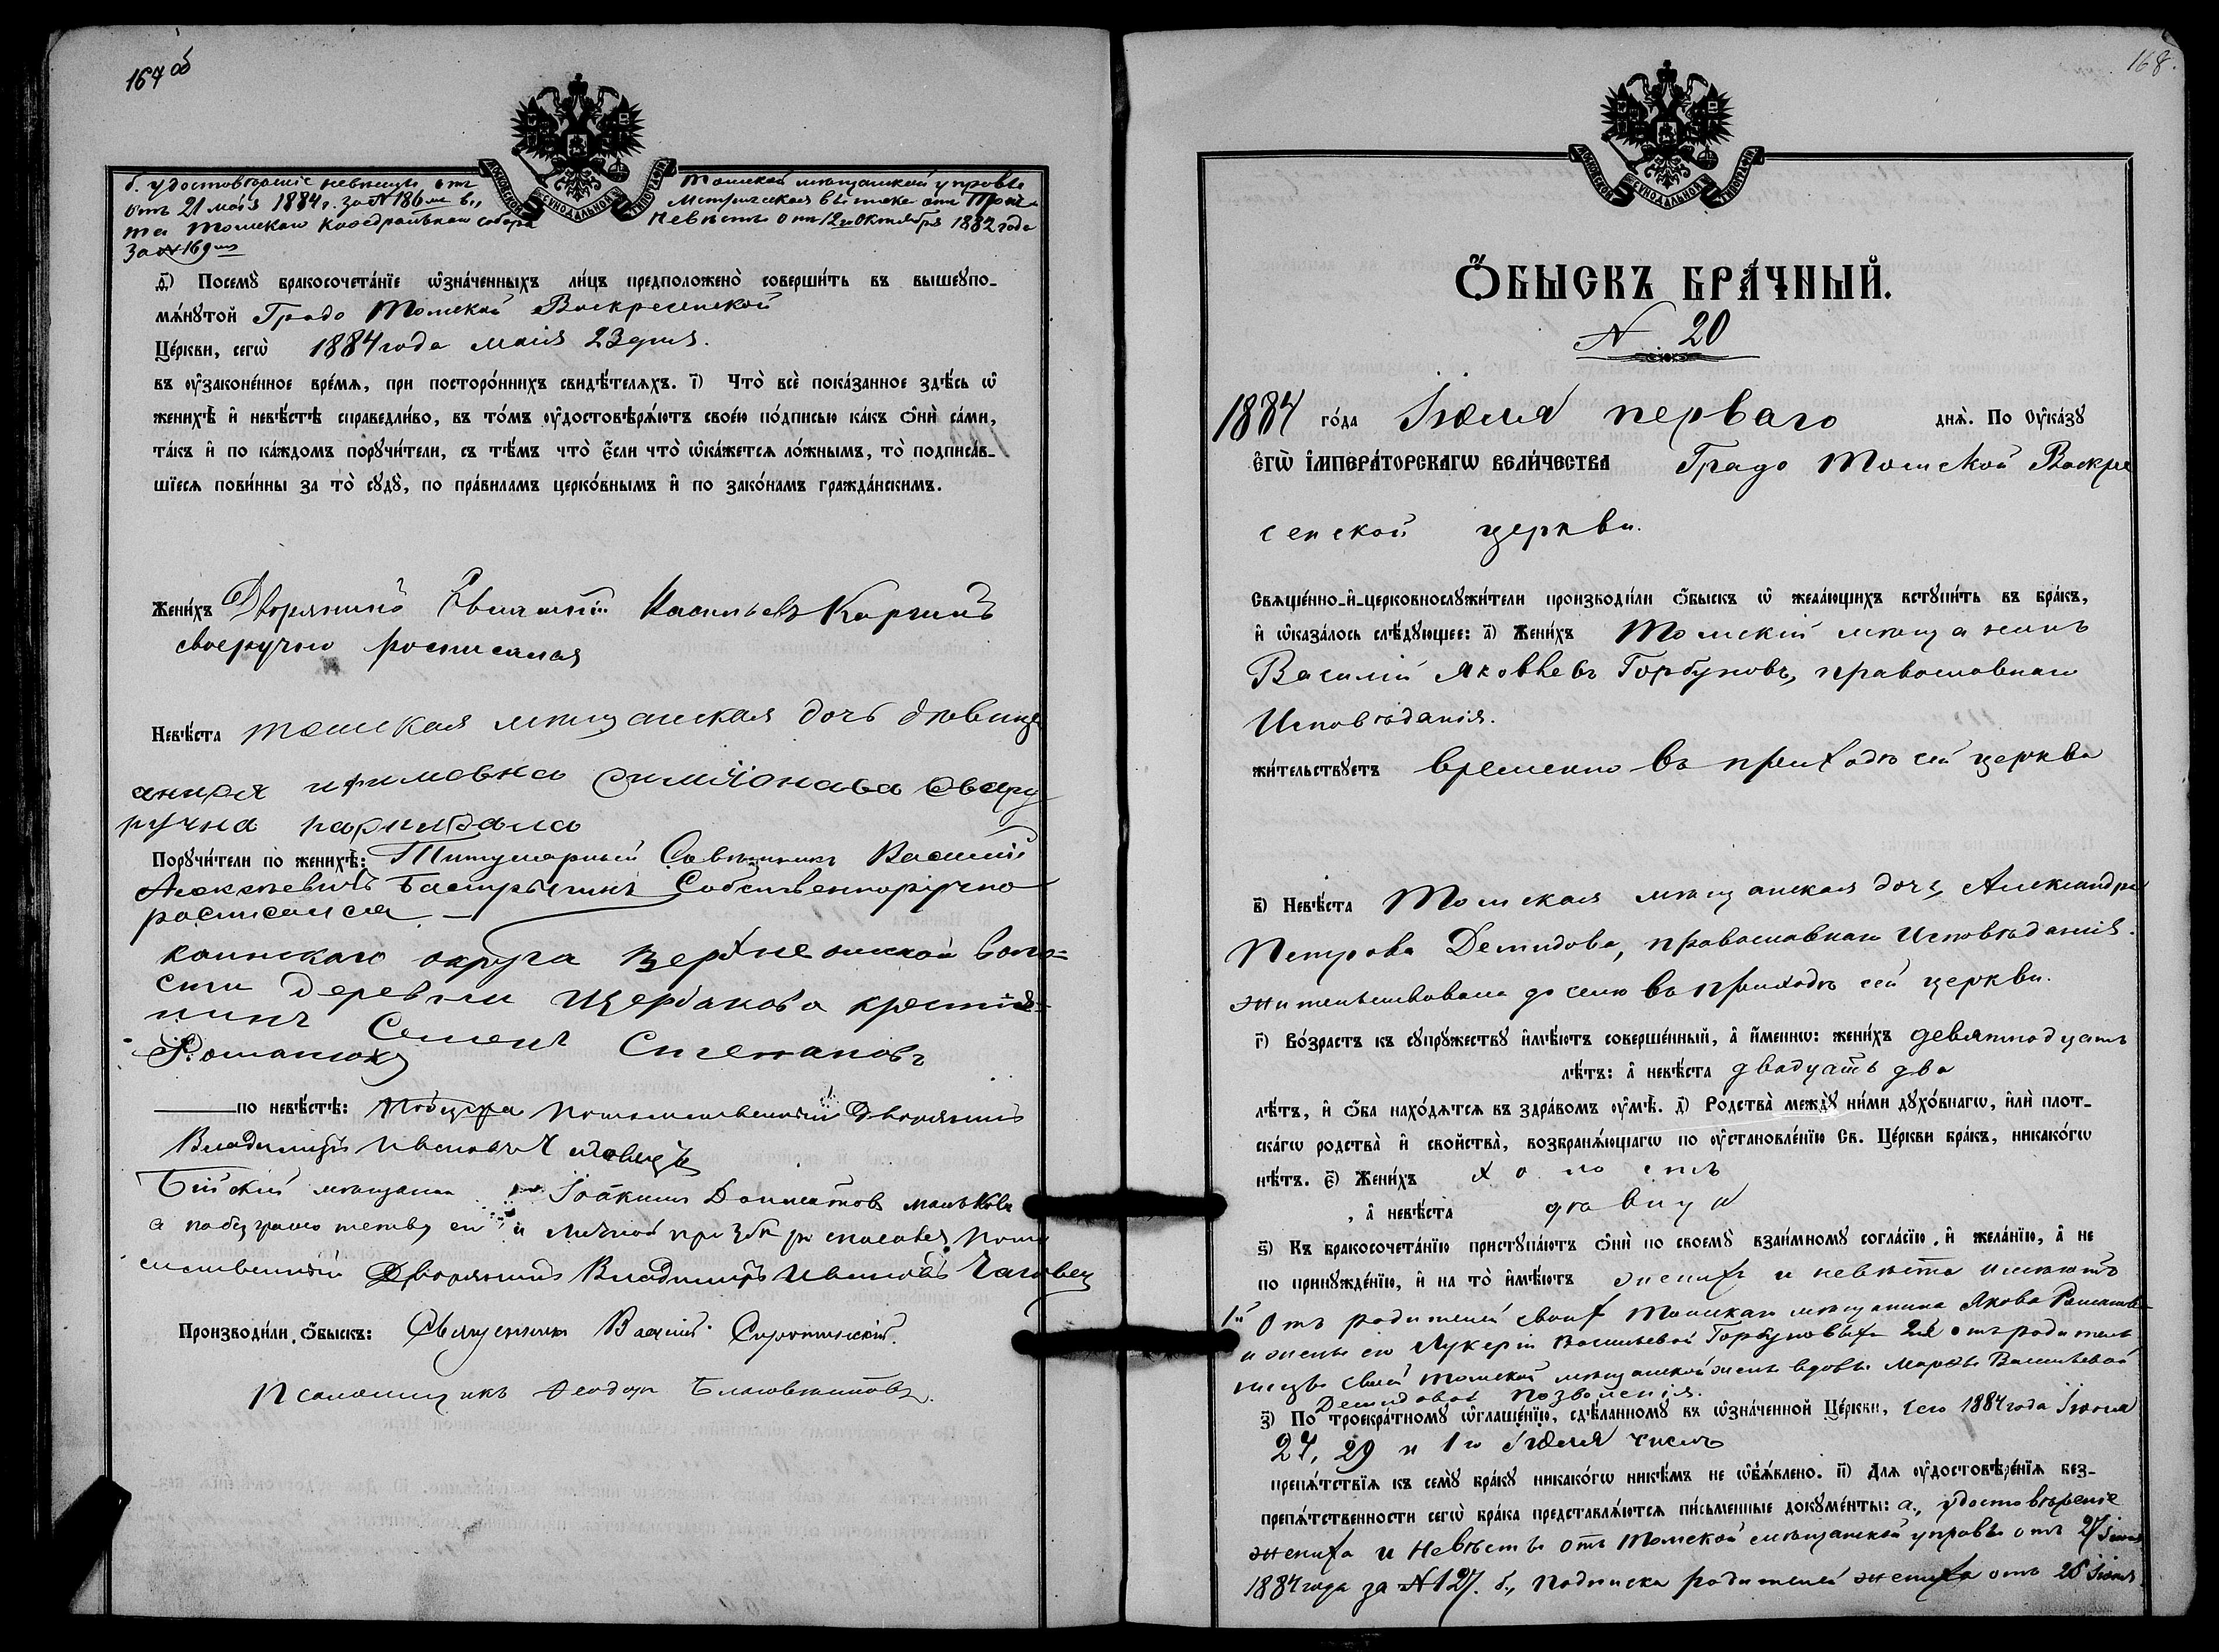 167 об
МОСКОВСКОЙ СѴНОДАЛЬНОЙ ТИПОГРАФІИ
б. удостовѣреніе невѣсты отъ Томской мѣщанской управы
отъ 21 мая 1884 г. за № 186 Метрическая выписка
Томскаго Каѳедральнаго собора невѣсты отъ 12 Октября 1882 года
за № 169
д҃) Посемꙋ̀ бракосочета́нїе ѡ҆зна́ченныхъ ли́цъ предположено̀ соверши́ть въ вышеꙋпо-
мѧ́нꙋтой Градо Томской Воскресенской
Це́ркви, сегѡ̀ 1884 года мая 23 дня.
въ ᲂу҆законе́нное вре́мѧ, при посторо́ннихъ свидѣ́телѧхъ. і҃) Что̀ всѐ пока́занное здѣ́сь ѡ҆
женихѣ̀ и҆ невѣ́стѣ справедли́во, въ то́мъ ᲂу҆достовѣрѧ́ютъ свое́ю по́дписью ка́къ ѻ҆нѝ са́ми,
та́къ и҆ по ка́ждомъ порꙋчи́тели, съ тѣ́мъ что̀ є҆́сли что̀ ѡ҆ка́жетсѧ ло́жнымъ, то̀ подписа́в-
шїесѧ пови́нны за то̀ сꙋдꙋ̀, по пра́виламъ церко́внымъ и҆ по зако́намъ гражда́нскимъ.
Жени́хъ Дворянинъ Каргинъ
своеручно росписался
Невѣ́ста томская мѣщанская дочь дѣвица

ручна
Порꙋчи́тели по женихѣ̀: Титулярный Совѣтникъ Василий
Алексѣевичъ Собственноручно
росписался
каинскаго округа Верхнеомской воло-
сти деревни Щербакова крестья-
нинъ Семенъ Степановъ
Романюк
по невѣ́стѣ: потомственный Дворянинъ
Владимиръ Ивановъ Чаговец
Бійскій мѣщанин Іоакимъ
а по безграмотству его и личной прозбѣ росписался Пото
мственный Дворянинъ Владимиръ Ивановъ Чаговец
Производи́ли ѻ҆́быскъ: Священникъ Василій Сиротинскій.
Псаломщикъ Ѳеодоръ
168.
МОСКОВСКОЙ СѴНОДАЛЬНОЙ ТИПОГРАФІИ
Ѻ҆́БЫСКЪ БРА́ЧНЫЙ.
№ 20
1884 го́да Іюля перваго днѧ̀. По Оу҆ка́зꙋ
є҆гѡ̀ і҆мпера́торскагѡ вели́чества Градо Томской Воскре
сенской церкви.
Свѧще́нно-и҆-церковнослꙋжи́тели производи́ли ѻ҆́быскъ ѡ҆ жела́ющихъ встꙋпи́ть въ бра́къ,
и҆ ѡ҆каза́лось слѣ́дꙋющее: а҃) Жени́хъ Томскій мѣщанинъ
Василій Яковлевъ Горбуновъ, православнаго
Исповѣданія.
жи́тельствꙋетъ временно въ приходѣ сей церкви
в҃) Невѣ́ста Томская мѣщанская дочь, Александра
Петрова Демидова, православнаго Исповѣданія.
жительствовала до селѣ въ приходѣ сей церкви.
г҃) Во́зрастъ къ сꙋпрꙋ́жествꙋ и҆мѣ́ютъ соверше́нный, а҆ и҆́меннѡ: жени́хъ девятнадцать
лѣ́тъ: а҆ невѣ́ста двадцать два
лѣ́тъ, и҆ ѻ҆́ба нахо́дѧтсѧ въ здра́вомъ ᲂу҆мѣ̀. д҃) Родства̀ междꙋ̀ ни́ми дꙋхо́внагѡ, и҆лѝ плот-
ска́гѡ родства̀ и҆ свойства̀, возбранѧ́ющагѡ по ᲂу҆становле́нїю Св. Це́ркви бра́къ, никако́гѡ
нѣ́тъ. є҃) Жени́хъ холостъ
, а҆ невѣ́ста дѣвица
ѕ҃) Къ бракосочета́нїю пристꙋпа́ютъ ѻ҆нѝ по своемꙋ̀ взаи́мномꙋ согла́сїю, и҆ жела́нїю, а҆ не
по принꙋжде́нїю, и҆ на то̀ и҆мѣ́ютъ женихъ и невѣста имѣютъ
1й Отъ родителей своих Томскаго мѣщанина Якова
и жены его Лукеріи Васильевой Горбуновыхъ 2я отъ родитель
ницы своей томской мѣщанской жены вдовы Марѳы Васильевой
Демидовой позволенія.
з҃) По троекра́тномꙋ ѡ҆глаше́нїю, сдѣ́ланномꙋ въ ѡ҆зна́ченной Це́ркви, сего 1884 года Іюня
27, 29 и 1го Іюля числъ
препѧ́тствїѧ къ семꙋ̀ бра́кꙋ никако́гѡ никѣ́мъ не ѡ҆б̾ѧ́влено. и҃) Длѧ ᲂу҆достовѣре́нїѧ без-
препѧ́тственности сегѡ̀ бра́ка представлѧ́ютсѧ пи́сьменные докꙋме́нты: а., удостовѣреніе
жениха и Невѣсты отъ Томской мѣщанской управы отъ 27 Іюня
1884 года за № 127. б., подписка родителей жениха отъ 26 Іюня